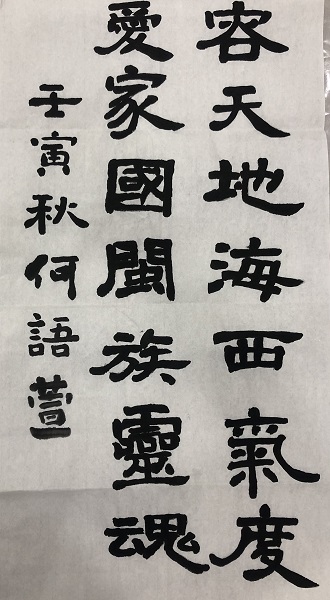 容天地海西氣度
愛家國閩族靈魂
壬寅秋何語萱